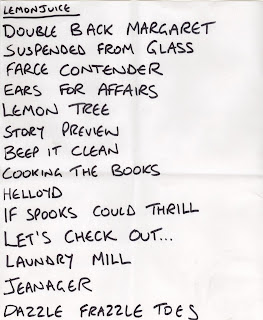 LEMONJUICE
DOUBLE BACK MARGARET
SUSPENDED FROM GLASS
FARCE CONTENDER
EARS FOR AFFAIRS
LEMON TREE
STORY PREVIEW
BEEP IT CLEAN
COOKING THE BOOKS
HELLOYD
IF SPOOKS COULD THRILL
LET'S CHECK OUT...
LAUNDRY MILL
JEANAGER
DAZZLE FRAZZLE TOES